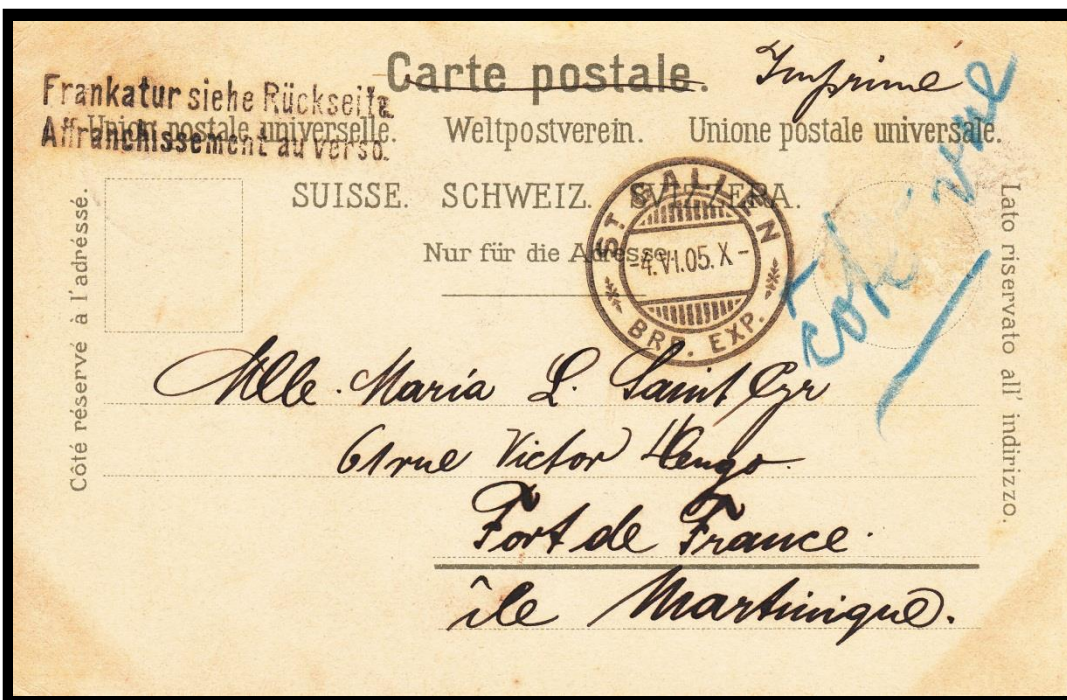 Carte postale. Imprimé
Frankatur siehe Rückseite.
Affranchissement au verso.
Union postale universelle. Weltpostverein. Unione postale universale.
SUISSE. SCHWEIZ. SVIZZERA.
Nur für die Adresse.
ST GALLEN
-4.VI.05.X-
BRF. EXP.
côté vue
Côté réservé à l'adréssé.
Lato riservato all' indirizzo.
Mlle. Maria L. Saint Cyr
61 rue Victor Hengo.
Fort de France.
île Martinique.